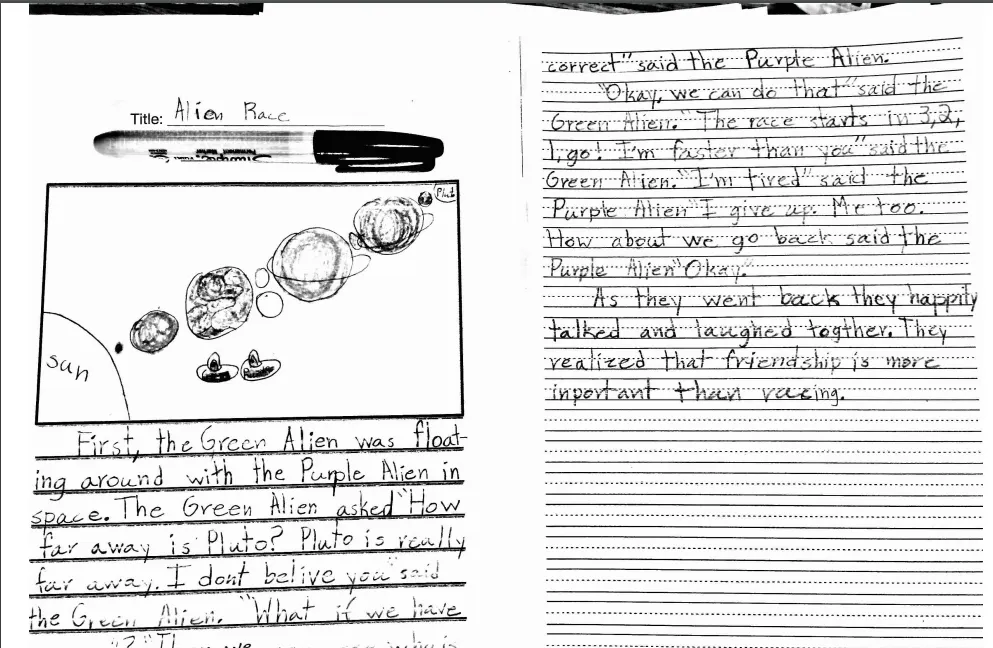 Title: Alien Race
Plut
sun
First, the Green Alien was float-
ing around with the Purple Alien in
space. The Green Alien asked "How
far away is Pluto? Pluto is really
far away. I dont belive you" said
the Green Alien. "What if we have
who is
correct" said the Purple Alien.
"Okay, we can do that" said the
Green Alien. "The race starts in 3, 2,
1, go! I'm faster than you" said the
Green Alien. "I'm tired" said the
Purple Alien "I give up. Me too.
How about we go back said the
Purple Alien "Okay."
As they went back they happily
talked and laughed togther. They
realized that friendship is more
inportant than racing.